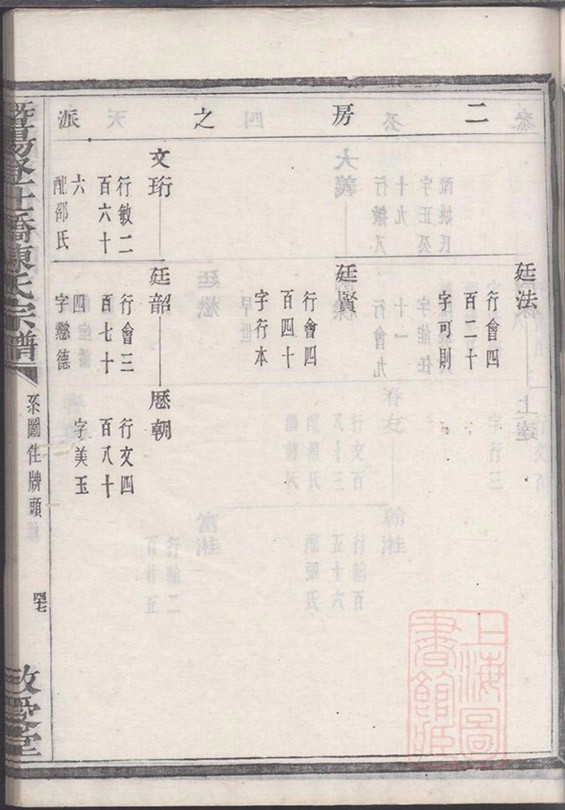 二房之派
廷法
行會四
百二十
字可則
廷賢
行會四
百四十
字行本
文珩
行敏二
百六十
六
配邵氏
廷韶
行會三
百七十
四
字懋德
歷朝
行文四
百八十
字美玉
陳氏宗譜
系圖住牌頭
四七
敬愛堂
上海圖
書館